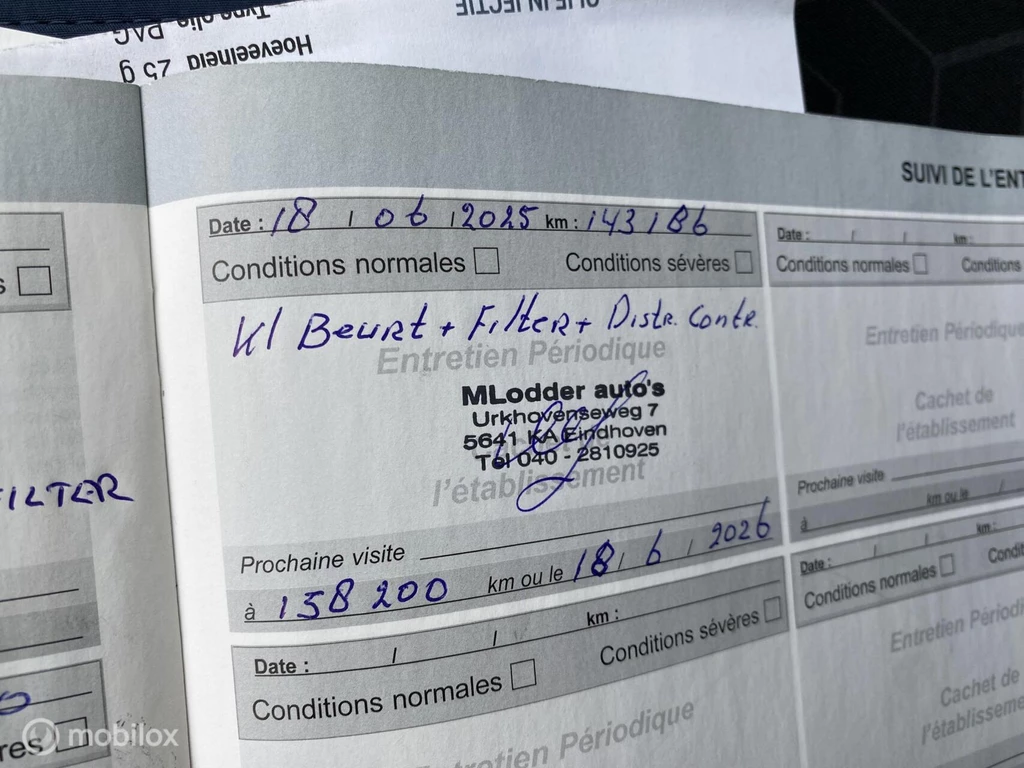 OLIE INJECTIE
Type olie PAG
Hoeveelheid 25 g
SUIVI DE L'ENT
Date : 18 / 06 / 2025 km : 143186
Conditions normales Conditions sévères
Kl Beurt + Filter + Distr. Contr.
Entretien Périodique
MLodder auto's
Urkhovenseweg 7
5641 KA Eindhoven
Tel 040 - 2810925
l'établissement
Prochaine visite
à 158 200 km ou le 18 / 6 / 2026
Date : / / km :
Conditions normales Conditions sévères
Entretien Périodique
Date : / / km :
Conditions normales Conditions
Entretien Périodique
Cachet de
l'établissement
Prochaine visite
à km ou le /
Date : / / km :
Conditions normales Condit
Entretien Périod
Cachet de
l'établisseme
FILTER
res
mobilox